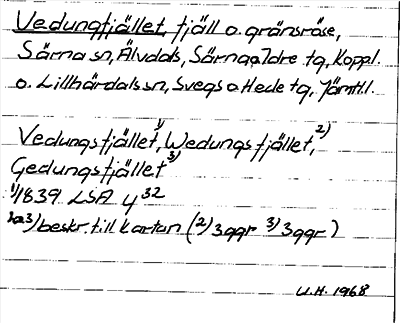 Vedungfjället, fjäll o. gränsröse,
Särna sn, Älvdals, Särna o Idre tg, Koppl.
o. Lillhärdals sn, Svegs o Hede tg, Jämtl.
Vedungsfjället,¹⁾ Wedungsfjället,²⁾
Gedungsfjället³⁾
¹⁾1839 LSA y³²
²⁾o³⁾beskr. till kartan (²⁾3ggr ³⁾3ggr)
U.H. 1968